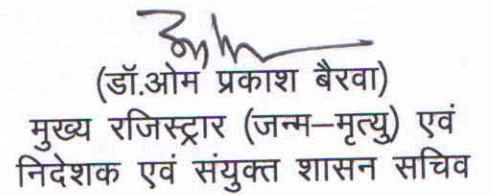 (डॉ.ओम प्रकाश बैरवा)
मुख्य रजिस्ट्रार (जन्म–मृत्यु) एवं
निदेशक एवं संयुक्त शासन सचिव